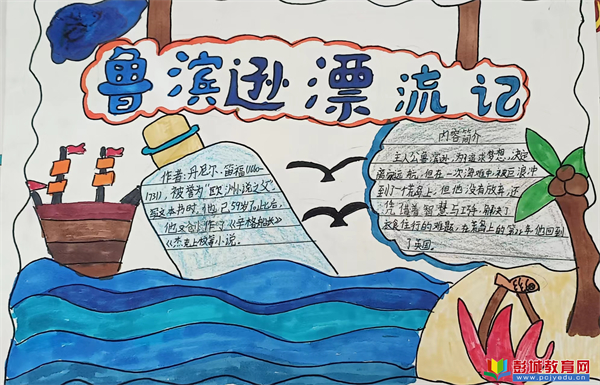 鲁滨逊漂流记
作者:丹尼尔·笛福(1660-
1731),被誉为“欧洲小说之父”,
写这本书时,他已59岁了。此后,
他又创作了《辛格船长》
《杰克上校》等小说。
内容简介
主人公鲁滨逊,为追求梦想,决定
离家远航,但在一次海难中,被巨浪冲
到了一个荒岛上,但他没有放弃,还
凭借着智慧与工具,解决了
衣食住行的难题,在荒岛上的第28年他回到
了英国。
彭城教育网
www.pcjyedu.cn